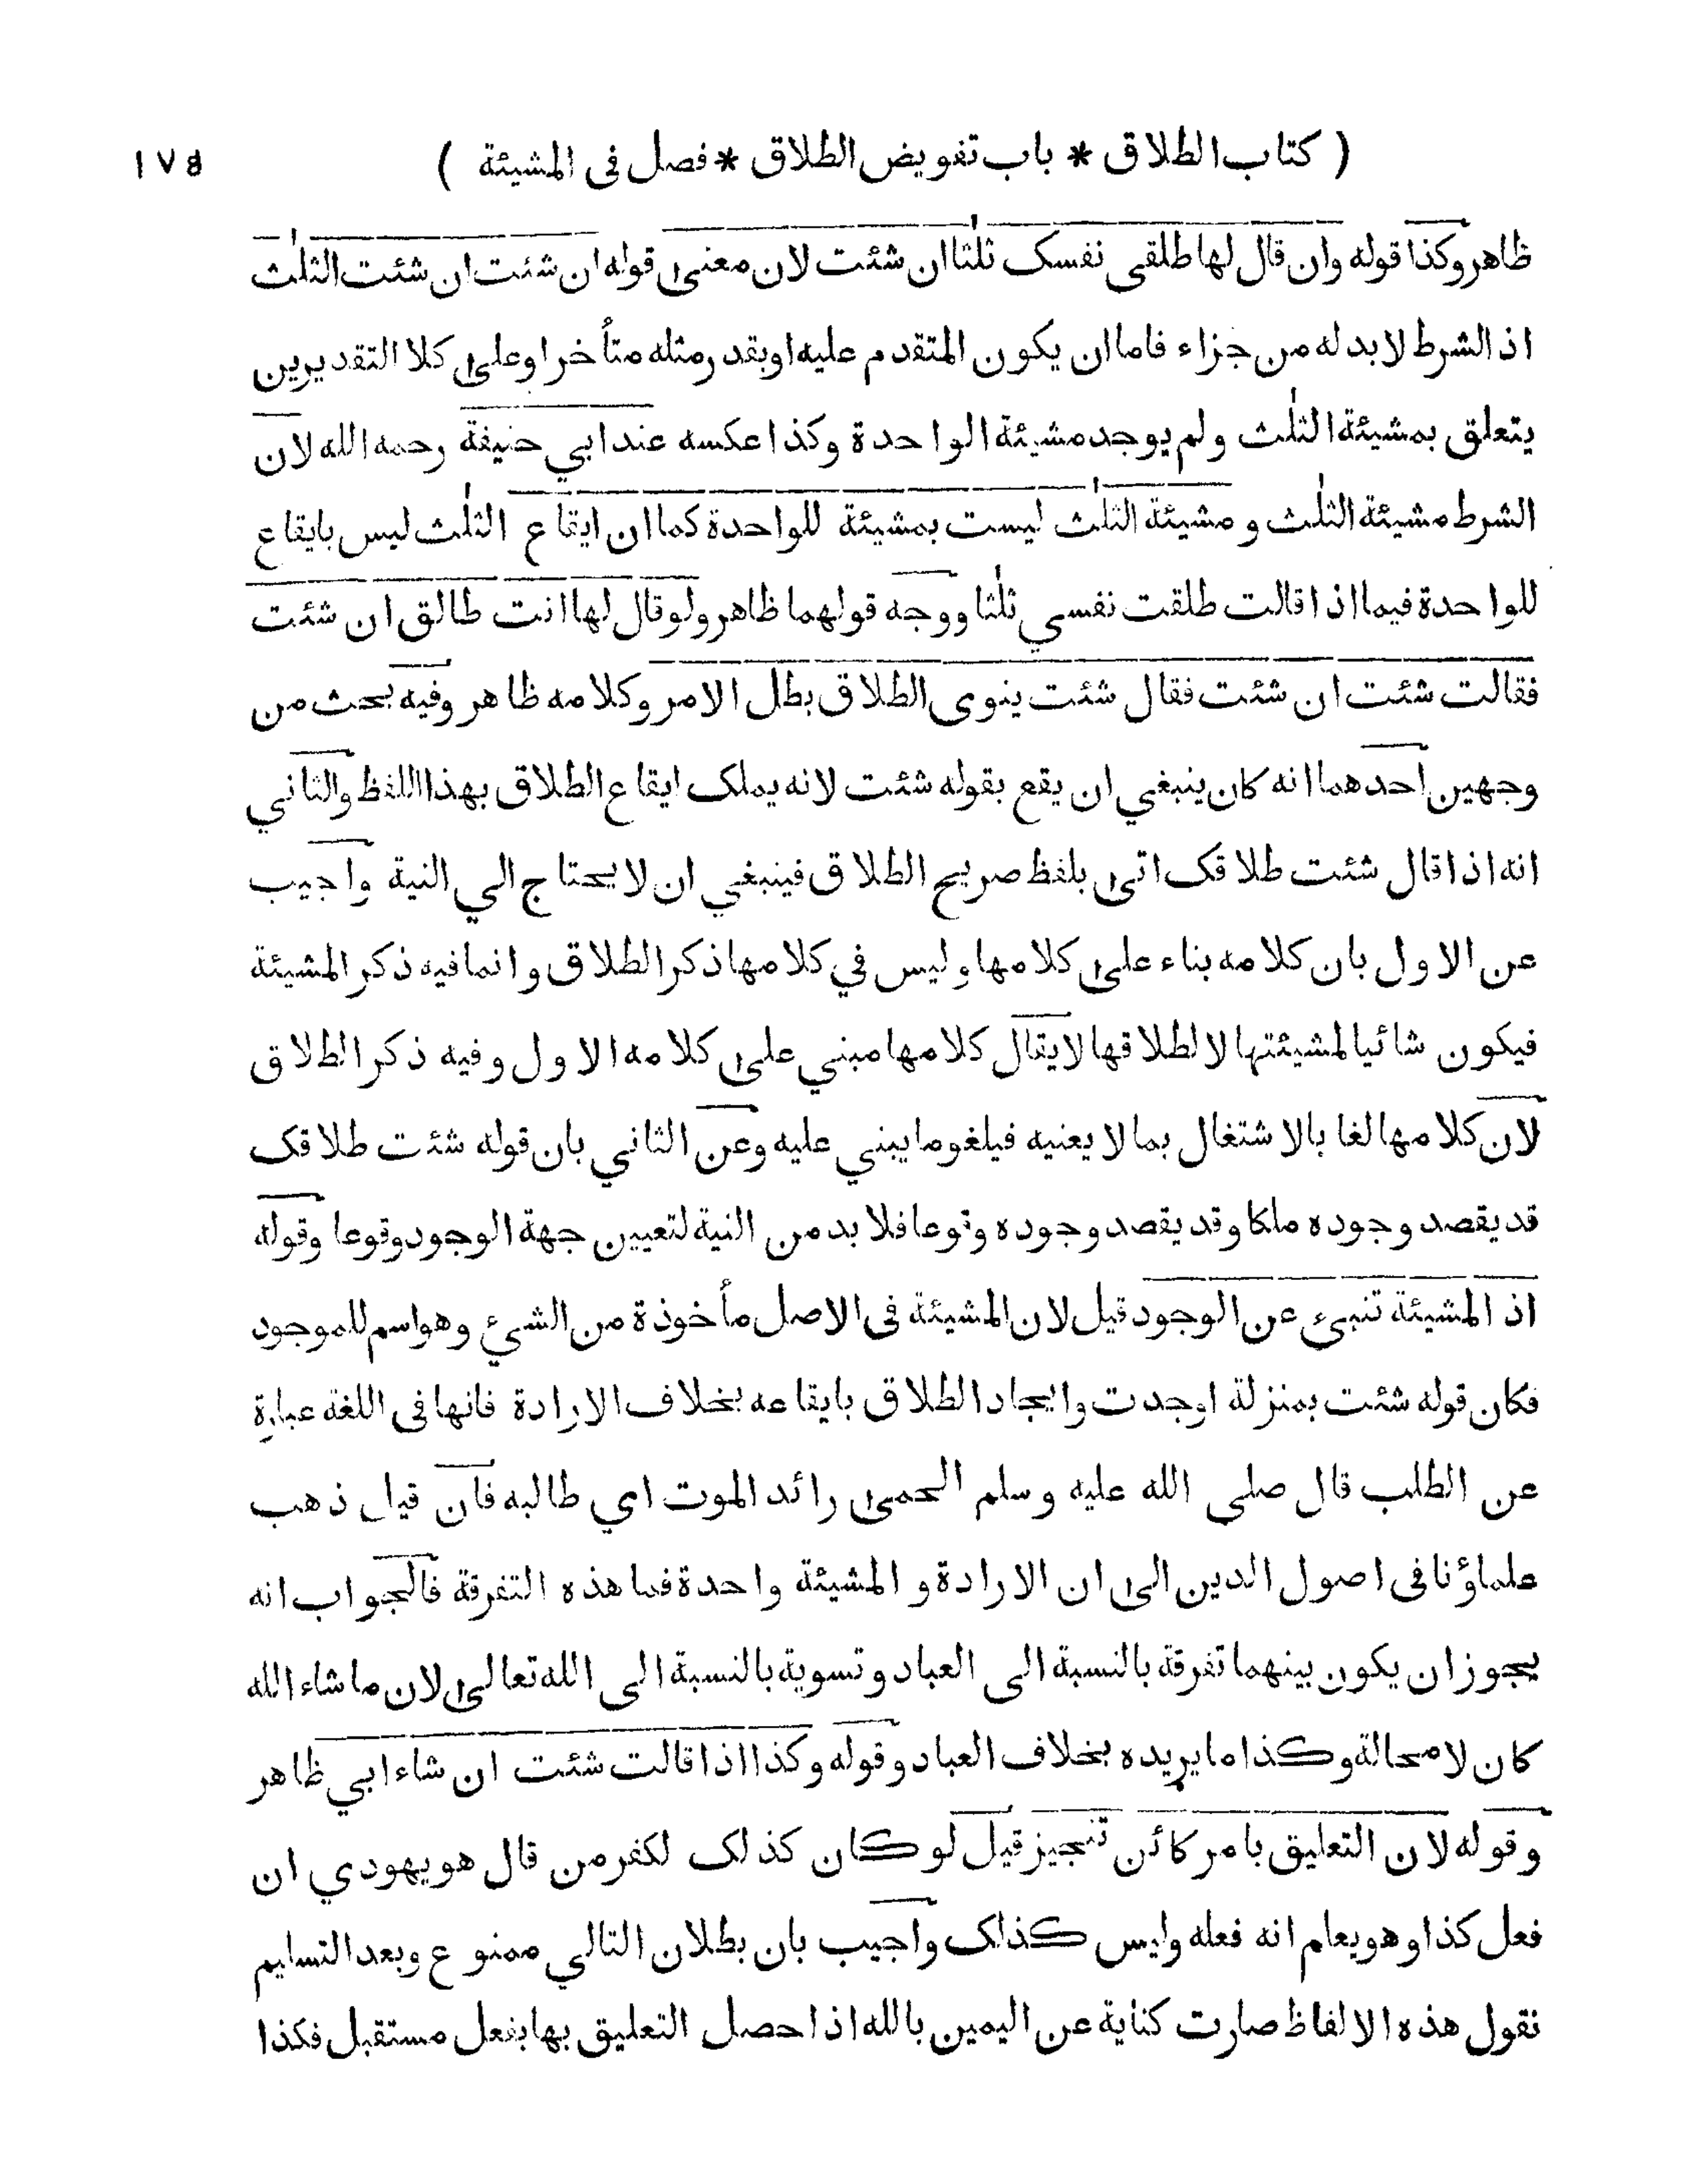 ( كتاب الطلاق * باب تفويض الطلاق * فصل فى المشيئة ) ١٧٥
ظاهر وكذا قوله وان قال لها طلقى نفسك ثلثا ان شئت لان معنى قوله ان شئت ان شئت الثلث
اذ الشرط لابد له من جزاء فاما ان يكون المتقدم عليه او يقدر مثله متأخرا وعلى كلا التقديرين
يتعلق بمشيئة الثلث ولم يوجد مشيئة الواحدة وكذا عكسه عند ابي حنيفة رحمه الله لان
الشرط مشيئة الثلث و مشيئة الثلث ليست بمشيئة للواحدة كما ان ايقاع الثلث ليس بايقاع
للواحدة فيما اذا قالت طلقت نفسي ثلثا ووجه قولهما ظاهر ولو قال لها انت طالق ان شئت
فقالت شئت ان شئت فقال شئت ينوى الطلاق بطل الامر وكلامه ظاهر وفيه بحث من
وجهين احدهما انه كان ينبغي ان يقع بقوله شئت لانه يملك ايقاع الطلاق بهذا اللفظ والثاني
انه اذا قال شئت طلاقك اتى بلفظ صريح الطلاق فينبغي ان لا يحتاج الي النية واجيب
عن الاول بان كلامه بناء على كلامها وليس في كلامها ذكر الطلاق وانما فيه ذكر المشيئة
فيكون شائيا لمشيئتها لا لطلاقها لا يقال كلامها مبني على كلامه الاول وفيه ذكر الطلاق
لان كلامها لغا بالاشتغال بما لا يعنيه فيلغو ما يبني عليه وعن الثاني بان قوله شئت طلاقك
قد يقصد وجوده ملكا وقد يقصد وجوده وقوعا فلا بد من النية لتعيين جهة الوجود وقوعا وقوله
اذ المشيئة تنبئ عن الوجود قيل لان المشيئة فى الاصل مأخوذة من الشيئ وهو اسم للموجود
فكان قوله شئت بمنزلة اوجدت وايجاد الطلاق بايقاعه بخلاف الارادة فانها فى اللغة عبارة
عن الطلب قال صلى الله عليه وسلم الحمى رائد الموت اي طالبه فان قيل ذهب
علماؤنا فى اصول الدين الى ان الارادة و المشيئة واحدة فما هذه التفرقة فالجواب انه
يجوز ان يكون بينهما تفرقة بالنسبة الى العباد وتسوية بالنسبة الى الله تعالى لان ما شاء الله
كان لا محالة وكذا ما يريده بخلاف العباد وقوله وكذا اذا قالت شئت ان شاء ابي ظاهر
وقوله لان التعليق بامر كائن تنجيز قيل لو كان كذلك لكفر من قال هو يهودي ان
فعل كذا وهو يعلم انه فعله وليس كذلك واجيب بان بطلان التالي ممنوع وبعد التسليم
نقول هذه الالفاظ صارت كناية عن اليمين بالله اذا حصل التعليق بها بفعل مستقبل فكذا